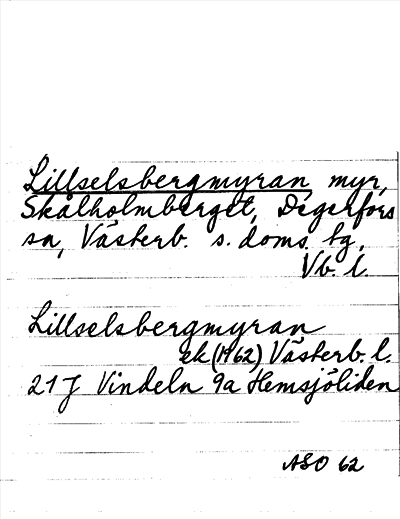 Lillselsbergmyran myr,
Skålholmberget, Degerfors
sn, Västerb. s. doms. tg,
Vb. l.
Lillselsbergmyran
ek (1962) Västerb. l.
21 J Vindeln 9a Hemsjöliden
ASO 62